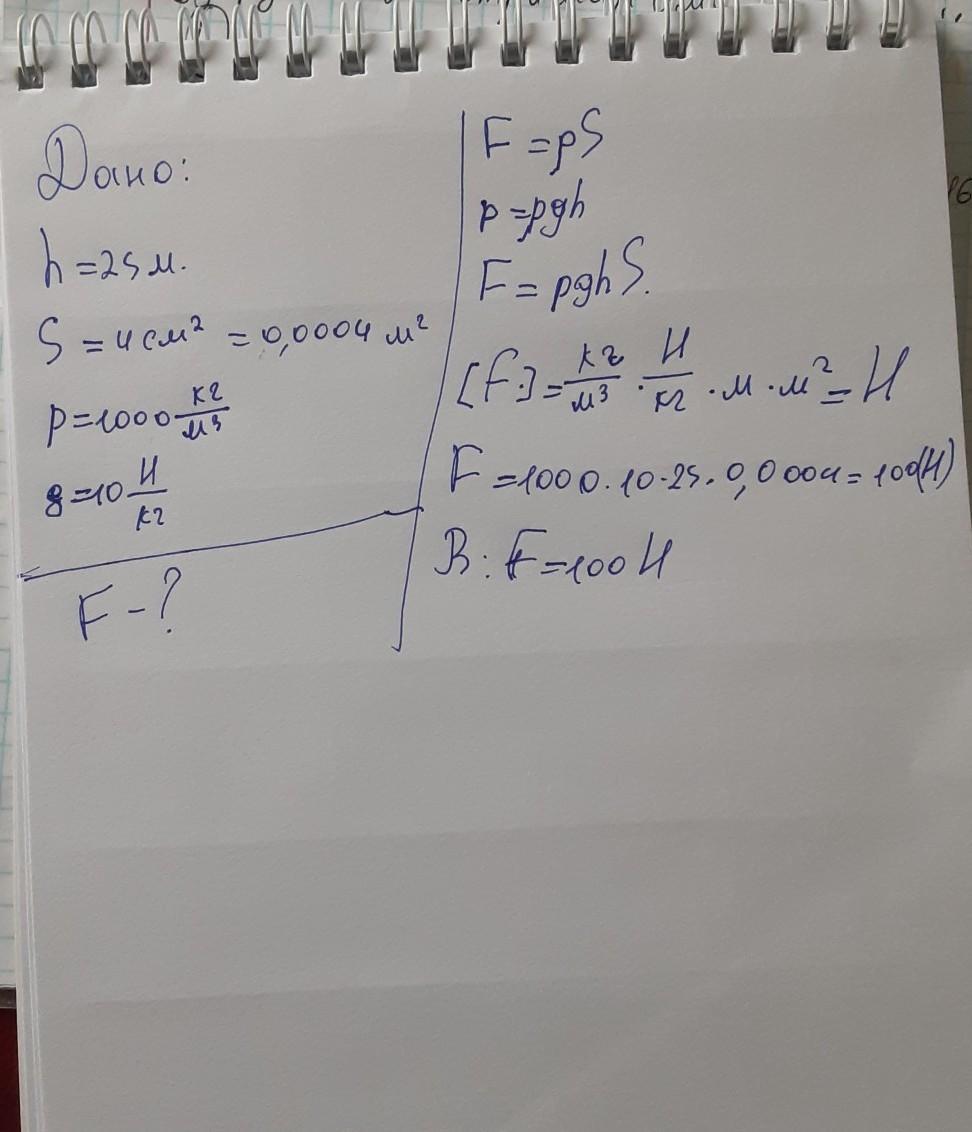 Дано:
h = 25 м.
S = 4 см² = 0,0004 м²
p = 1000 кг/м³
g = 10 Н/кг
F - ?
F = pS
p = pgh
F = pghS.
[F] = кг/м³ · Н/кг · м · м² = Н
F = 1000 · 10 · 25 · 0,0004 = 100(Н)
В: F = 100 Н